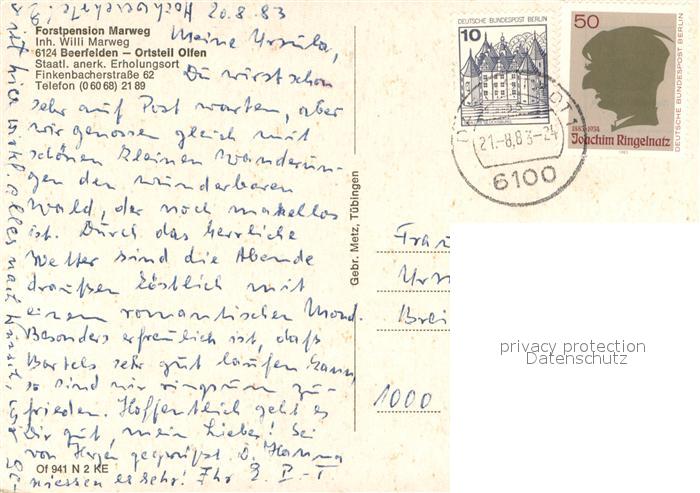 Hochverehrte! 20.8.83
Forstpension Marweg
Inh. Willi Marweg
6124 Beerfelden – Ortsteil Olfen
Staatl. anerk. Erholungsort
Finkenbacherstraße 62
Telefon (0 60 68) 21 89
Meine Ursula,
Du wirst schon
sehr auf Post warten, aber
wir genossen gleich mit
schönen kleinen Wanderun-
gen den wunderbaren
Wald, der noch makellos
ist. Durch das herrliche
Wetter sind die Abende
draußen köstlich mit
einem romantischen Mond.
Besonders erfreulich ist, daß
Bartels sehr gut laufen kann,
so sind wir ringsum zu-
frieden. Hoffentlich geht es
Dir gut, mein Liebes! Sei
von Herzen gegrüßt D. Hanna
Of 941 N 2 KE
niessen es sehr! Ihr
Gebr. Metz, Tübingen
10 DEUTSCHE BUNDESPOST BERLIN
50
DEUTSCHE BUNDESPOST BERLIN
1883-1934
Joachim Ringelnatz
1983
21.-8.83-24
6100
Frau
1000
privacy protection
Datenschutz